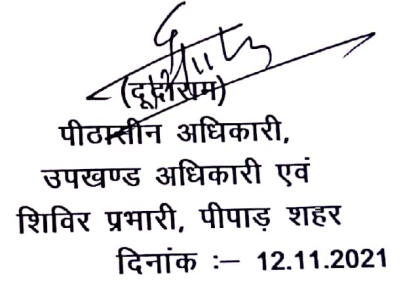 (दूदाराम)
पीठासीन अधिकारी,
उपखण्ड अधिकारी एवं
शिविर प्रभारी, पीपाड़ शहर
दिनांक :– 12.11.2021